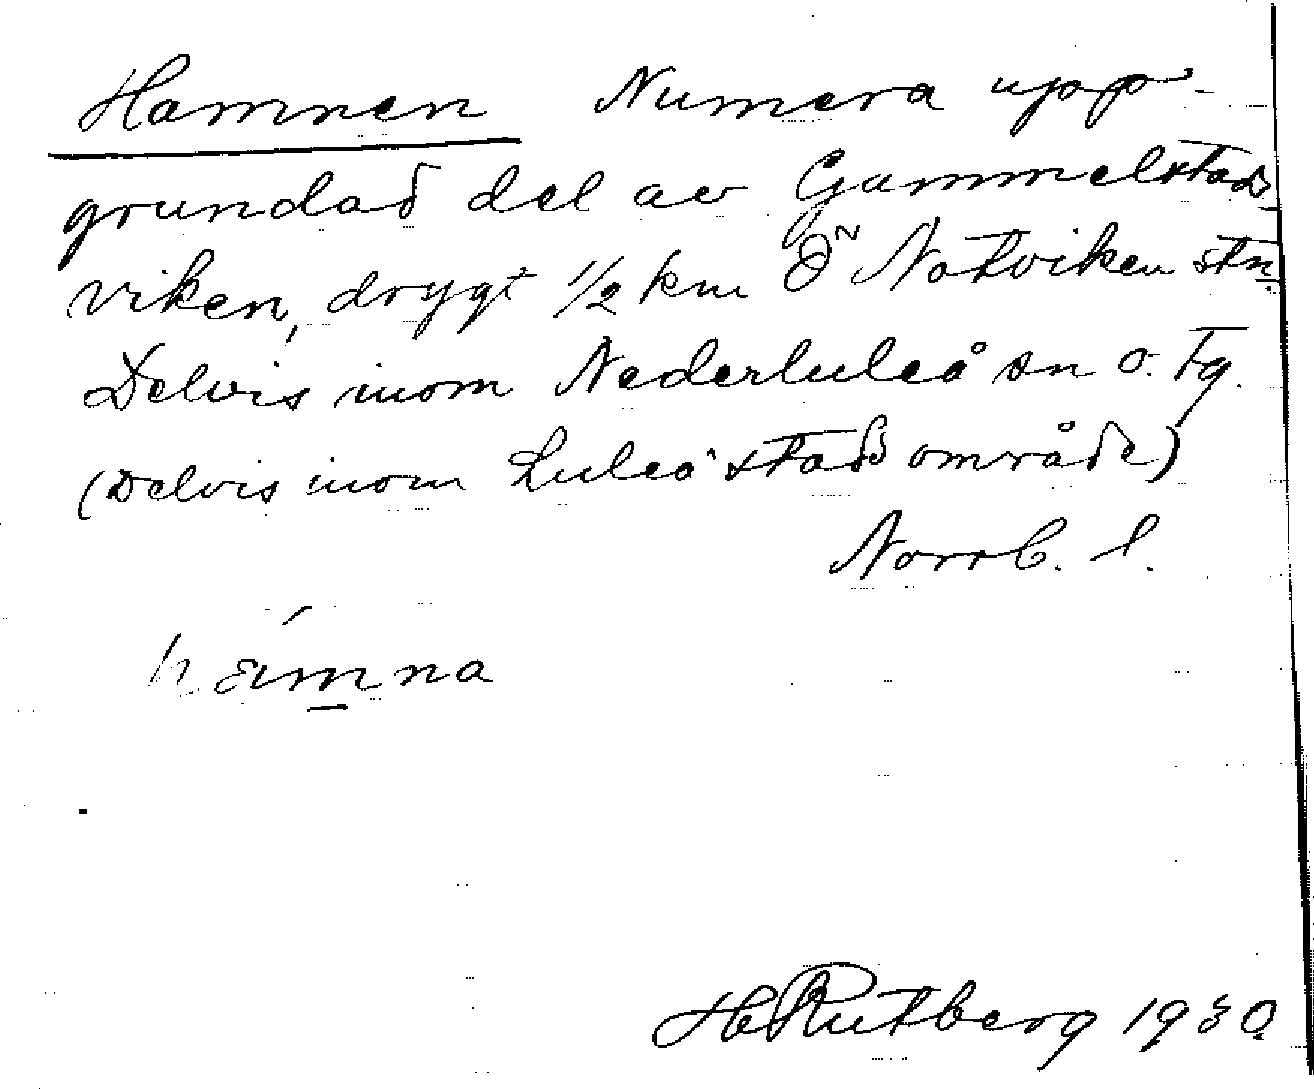 Hamnen Numera upp-
grundad del av Gammelstads
viken, drygt 1/2 km Ö Notviken stn
Delvis inom Nederluleå sn o. tg.
(Delvis inom Luleå stads område)
Norrb. l.
na
H Rutberg 1930